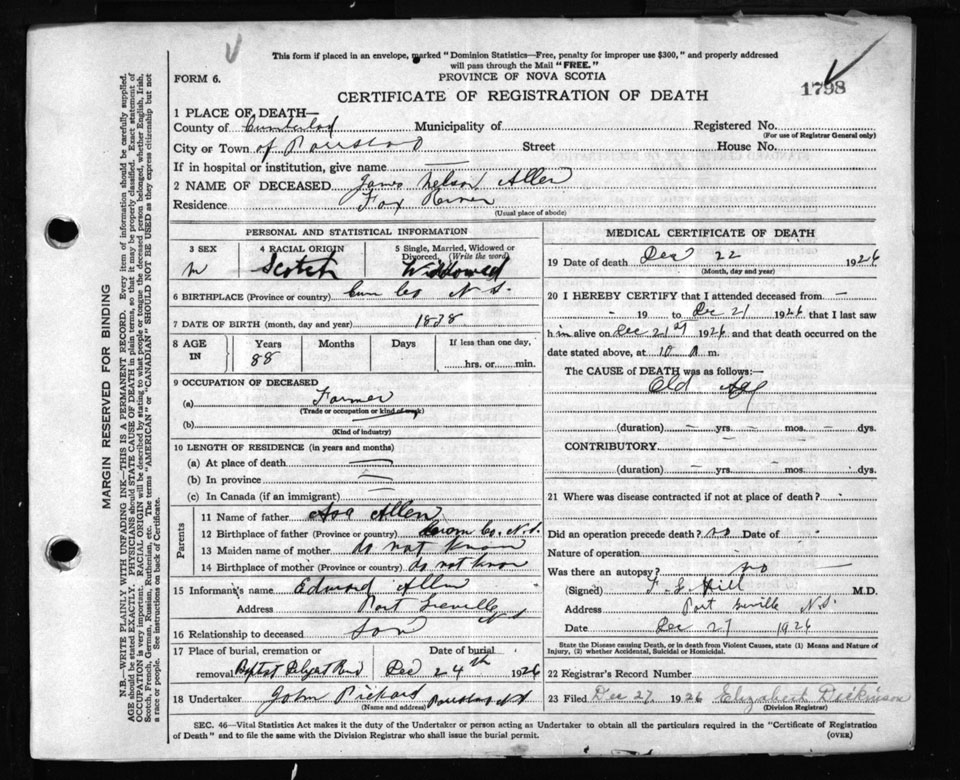 This form if placed in an envelope, marked "Dominion Statistics—Free, penalty for improper use $300," and properly addressed
will pass through the Mail "FREE."
FORM 6.
PROVINCE OF NOVA SCOTIA
1798
CERTIFICATE OF REGISTRATION OF DEATH
1 PLACE OF DEATH—
County of Cumberland Municipality of Registered No.
(For use of Registrar General only)
City or Town of Parrsboro Street House No.
If in hospital or institution, give name —
2 NAME OF DECEASED James Nelson Allen
Residence Fox River
(Usual place of abode)
PERSONAL AND STATISTICAL INFORMATION
3 SEX 4 RACIAL ORIGIN 5 Single, Married, Widowed or Divorced. (Write the word)
M Scotch Widdowed
6 BIRTHPLACE (Province or country) Cum Co N S.
7 DATE OF BIRTH (month, day and year) 1838
8 AGE IN Years Months Days If less than one day,
88 hrs. or min.
9 OCCUPATION OF DECEASED
(a) Farmer
(Trade or occupation or kind of work)
(b)
(Kind of industry)
10 LENGTH OF RESIDENCE (in years and months)
(a) At place of death —
(b) In province —
(c) In Canada (if an immigrant) —
Parents
11 Name of father Allen
12 Birthplace of father (Province or country) Cum Co. N.S.
13 Maiden name of mother do not know
14 Birthplace of mother (Province or country) do not know
15 Informant's name Edward Allen
Address Port Greville N S
16 Relationship to deceased Son
17 Place of burial, cremation or removal Date of burial
Baptist Dec 24th 1926
18 Undertaker John Pickard Parrsboro N S
(Name and address)
MEDICAL CERTIFICATE OF DEATH
19 Date of death Dec 22 1926
(Month, day and year)
20 I HEREBY CERTIFY that I attended deceased from —
- 19 to Dec 21 1926 that I last saw
him alive on Dec 21st 1926 and that death occurred on the
date stated above, at 10 A m.
The CAUSE of DEATH was as follows:—
Old Age
(duration) — yrs. — mos. — dys.
CONTRIBUTORY.
(duration) — yrs. — mos. — dys.
21 Where was disease contracted if not at place of death?
Did an operation precede death? no Date of -
Nature of operation
Was there an autopsy? no
(Signed) F. G. Hill M.D.
Address Port Greville N.S.
Date Dec 27 1926
State the Disease causing Death, or in death from Violent Causes, state (1) Means and Nature of
Injury, (2) whether Accidental, Suicidal or Homicidal.
22 Registrar's Record Number
23 Filed Dec 27 1926 Elizabeth Dickinson
(Division Registrar)
SEC. 46—Vital Statistics Act makes it the duty of the Undertaker or person acting as Undertaker to obtain all the particulars required in the "Certificate of Registration
of Death" and to file the same with the Division Registrar who shall issue the burial permit.
(OVER)
MARGIN RESERVED FOR BINDING
N.B.—WRITE PLAINLY WITH UNFADING INK—THIS IS A PERMANENT RECORD. Every item of information should be carefully supplied.
AGE should be stated EXACTLY. PHYSICIANS should STATE CAUSE OF DEATH in plain terms, so that it may be properly classified. Exact statement of
OCCUPATION is very important. RACIAL ORIGIN will be described by stating to what people or tongue the deceased person belonged, whether English, Irish,
Scotch, French, German, Russian, Ruthenian, etc. The terms "AMERICAN" or "CANADIAN" SHOULD NOT BE USED as they express citizenship but not
a race or people. See instructions on back of Certificate.